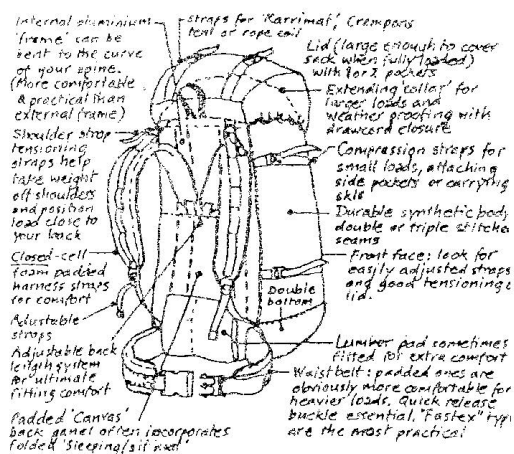 Internal aluminium
'frame' can be
bent to the curve
of your spine.
(More comfortable
& practical than
external frame)
Shoulder strap
tensioning
straps help
take weight
off shoulders
and position
load close to
your back
Closed-cell
foam padded
harness straps
for comfort
Adjustable
straps
Adjustable back
length system
for ultimate
fitting comfort
Padded 'Canvas'
back panel often incorporates
folded 'sleeping/sit
straps for 'Karrimat', Crampons
tent or rope coil
Lid (large enough to cover
sack when fully loaded)
with 1 or 2 pockets
Extending 'collar' for
larger loads and
weather proofing with
drawcord closure
Compression straps for
small loads, attaching
side pockets or carrying
skis
Durable synthetic body
double or triple stitche
seams
Front face: look for
easily adjusted straps
and good tensioning
lid.
Double
bottom
Lumber pad sometimes
fitted for extra comfort
Waistbelt: padded ones are
obviously more comfortable for
heavier loads. Quick release
buckle essential. "Fastex" typ
are the most practical